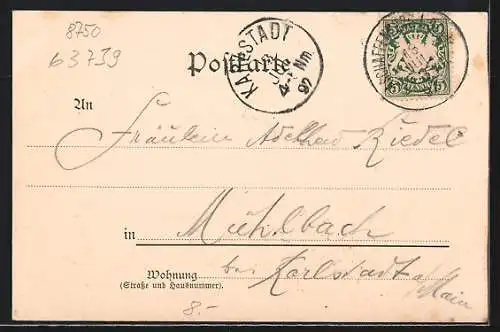 8750
63739
Postkarte
KARLSTADT
4-5 Nm
97
5
An
Fräulein Adelheid Riedel
in Mühlbach
Wohnung
(Straße und Hausnummer).
bei Karlstadt a/ Main
8.-